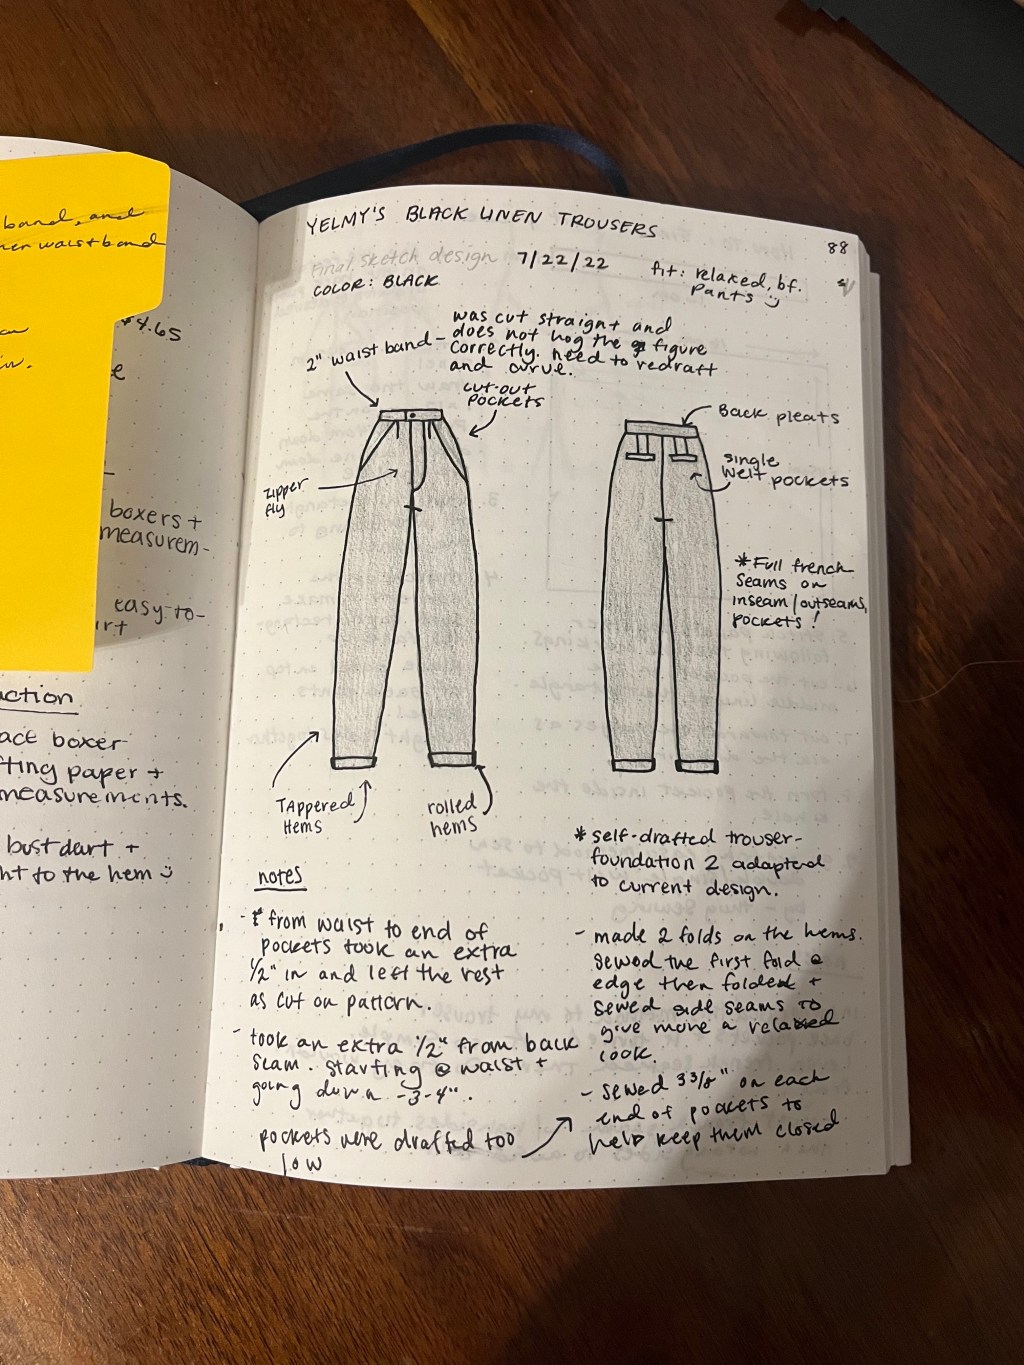 band, and
waistband
$4.65
e
boxers +
measurem-
easy-to-
action
boxer
paper +
measurements.
bust dart +
to the hem
YELMY'S BLACK LINEN TROUSERS
88
final sketch design 7/22/22
COLOR: BLACK
fit: relaxed, bf.
pants
2" waist band -
was cut straight and
does not hog the figure
correctly. need to redraft
and curve.
cut-out
pockets
Zipper
fly
Back pleats
single
welt pockets
*Full french
seams on
inseam/outseams,
pockets!
TAppered
Hems
rolled
hems
* self-drafted trouser-
foundation 2 adapted
to current design.
notes
- from waist to end of
pockets took an extra
1/2" in and left the rest
as cut on pattern.
- took an extra 1/2" from back
seam. starting @ waist +
going down -3-4".
pockets were draffed too
low
- made 2 folds on the hems.
sewed the first fold @
edge then folded +
sewed side seams to
give more a relaxed
look.
- sewed 3 3/8" on each
end of pockets to
help keep them closed